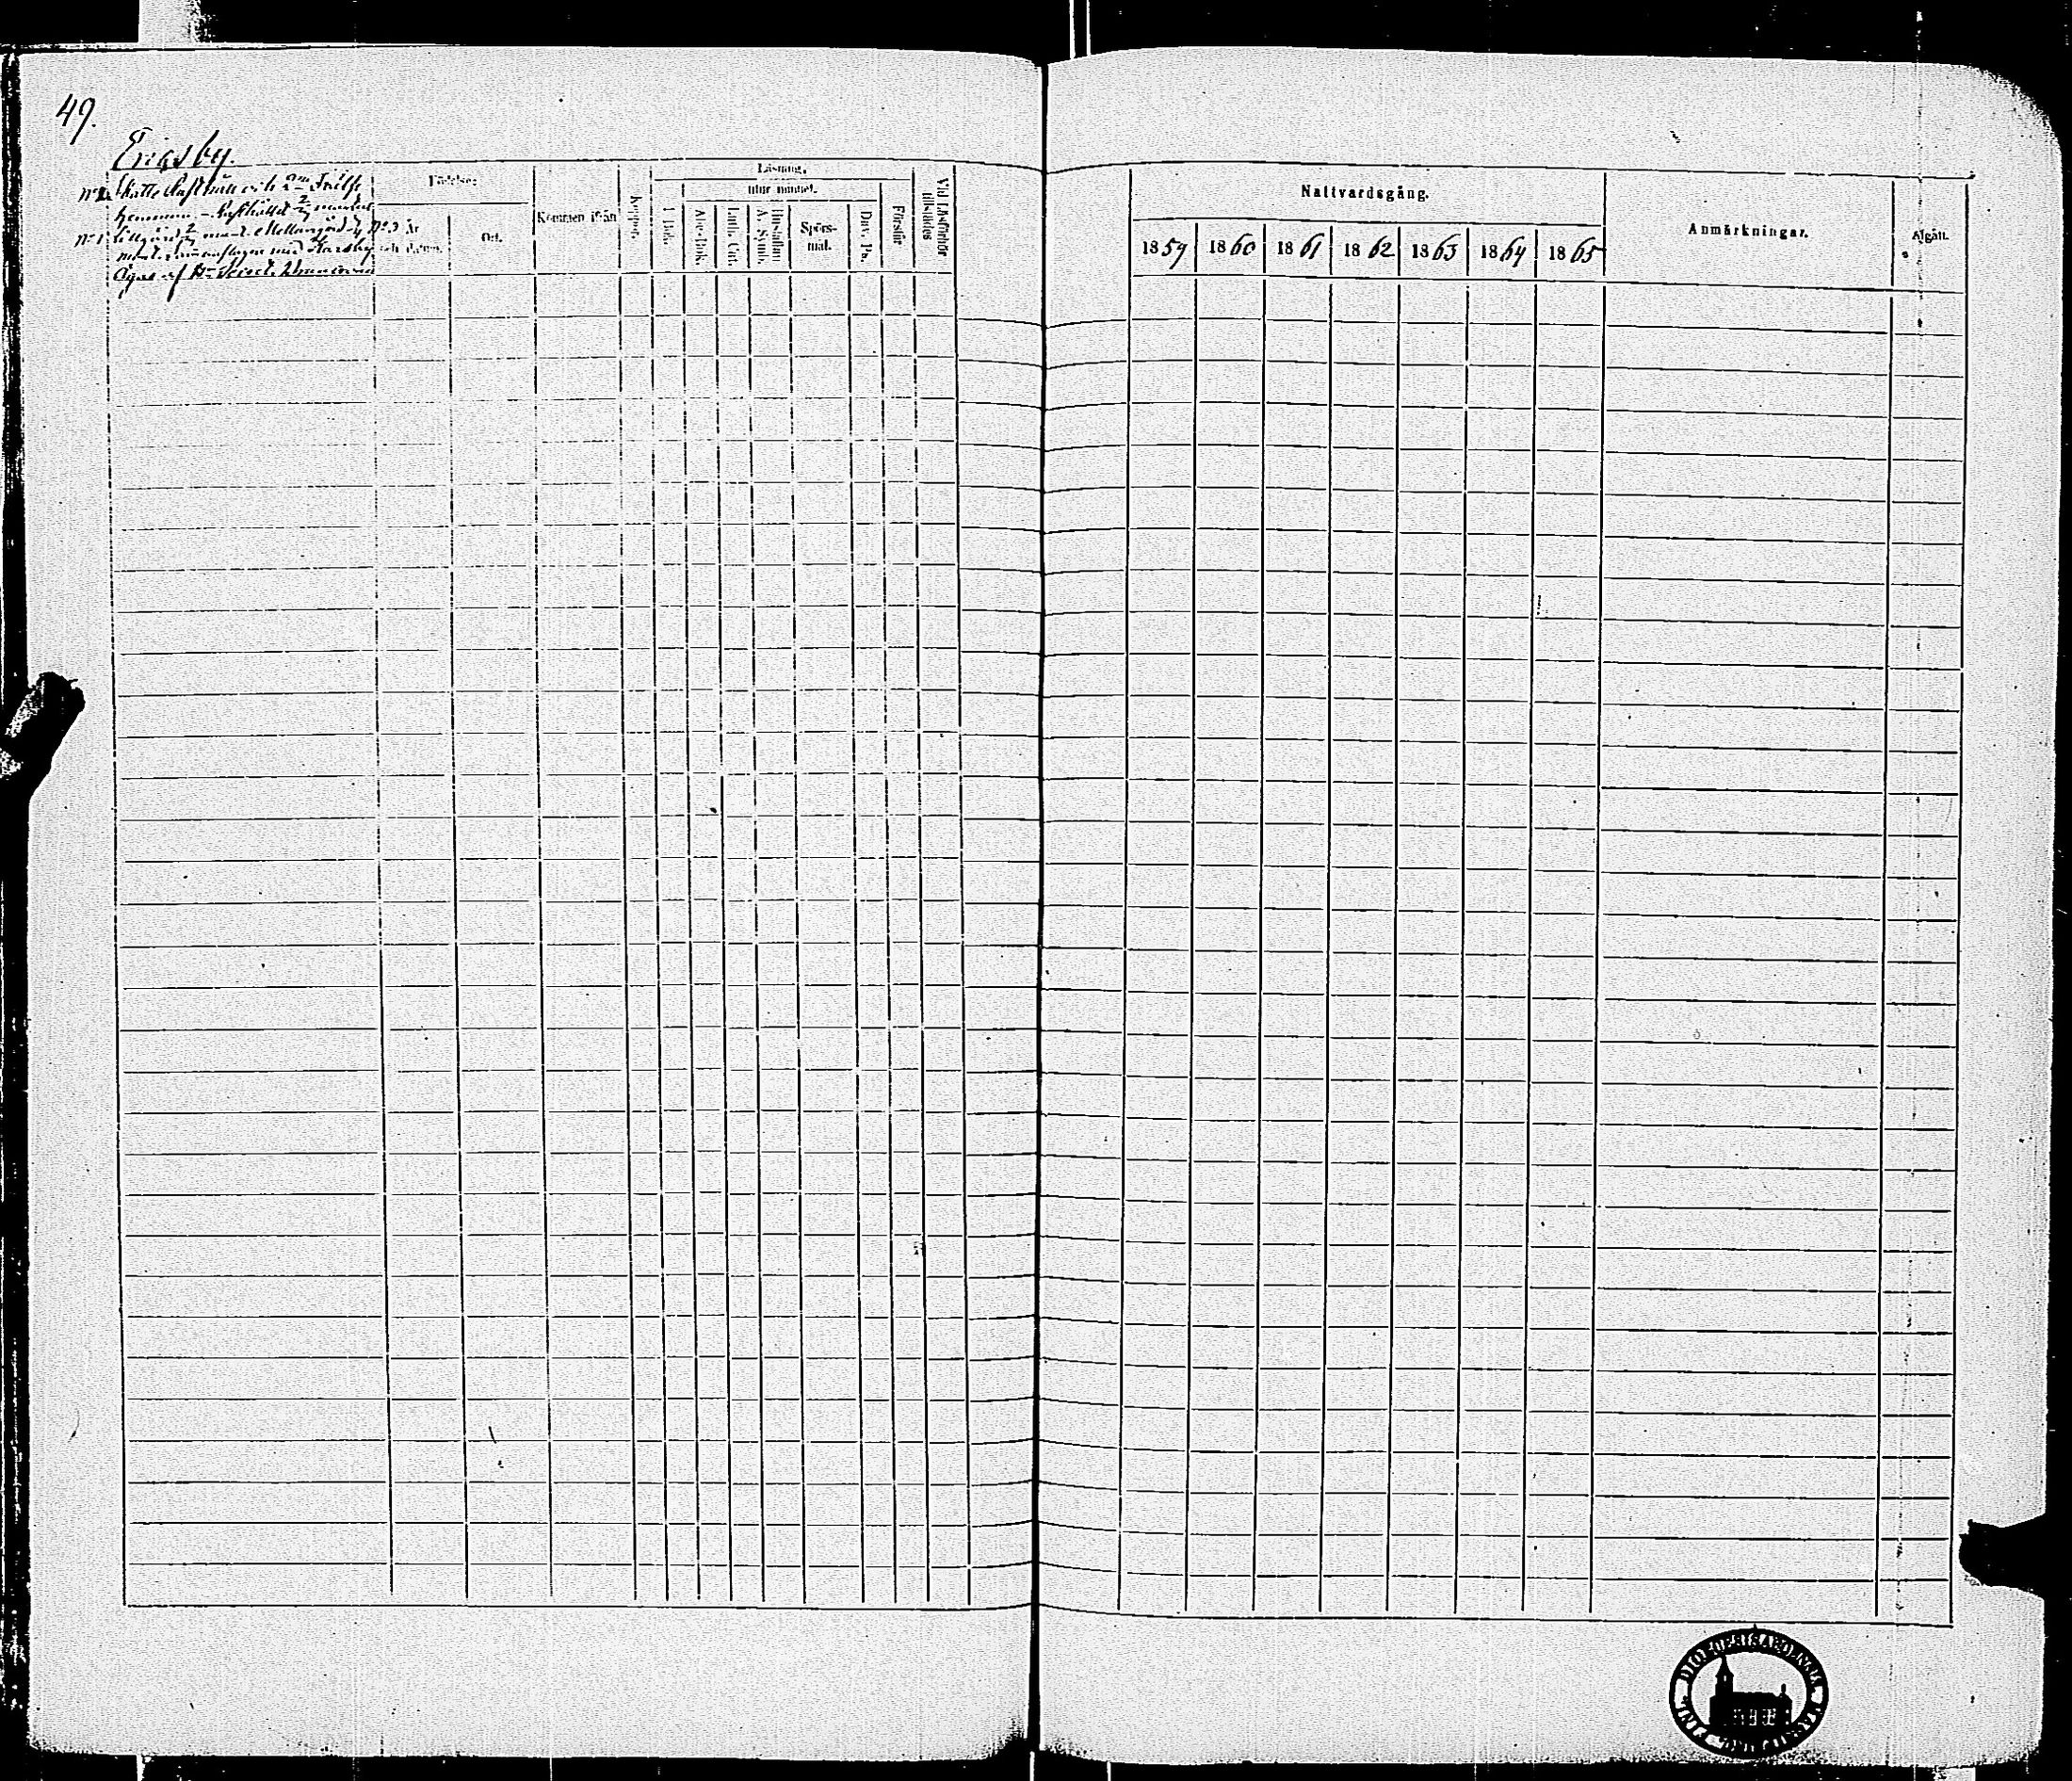 49.
Erigsby.
No 2. Skatte Rusthåll och 2ne Frälse
hemman. – Rusthållet 2/3 mantal
No 1 Lillgård 2/3 mant. Mellangård 2/3 No 3
mant. sammanslagne med Karsby
Äges af
Födelse;
År och datum.
Ort.
Kommen ifrån
Koppor.
Läsning,
utur minnet.
I Bok.
Abc-Bok.
Luth. Cat.
Hustaflan A. Symb.
Spörs-
mål.
Dav. Ps.
Förstår
Vid Läsförhör tillstädes
Nattvardsgång.
1859
1860
1861
1862
1863
1864
1865
Anmärkningar.
Afgått.